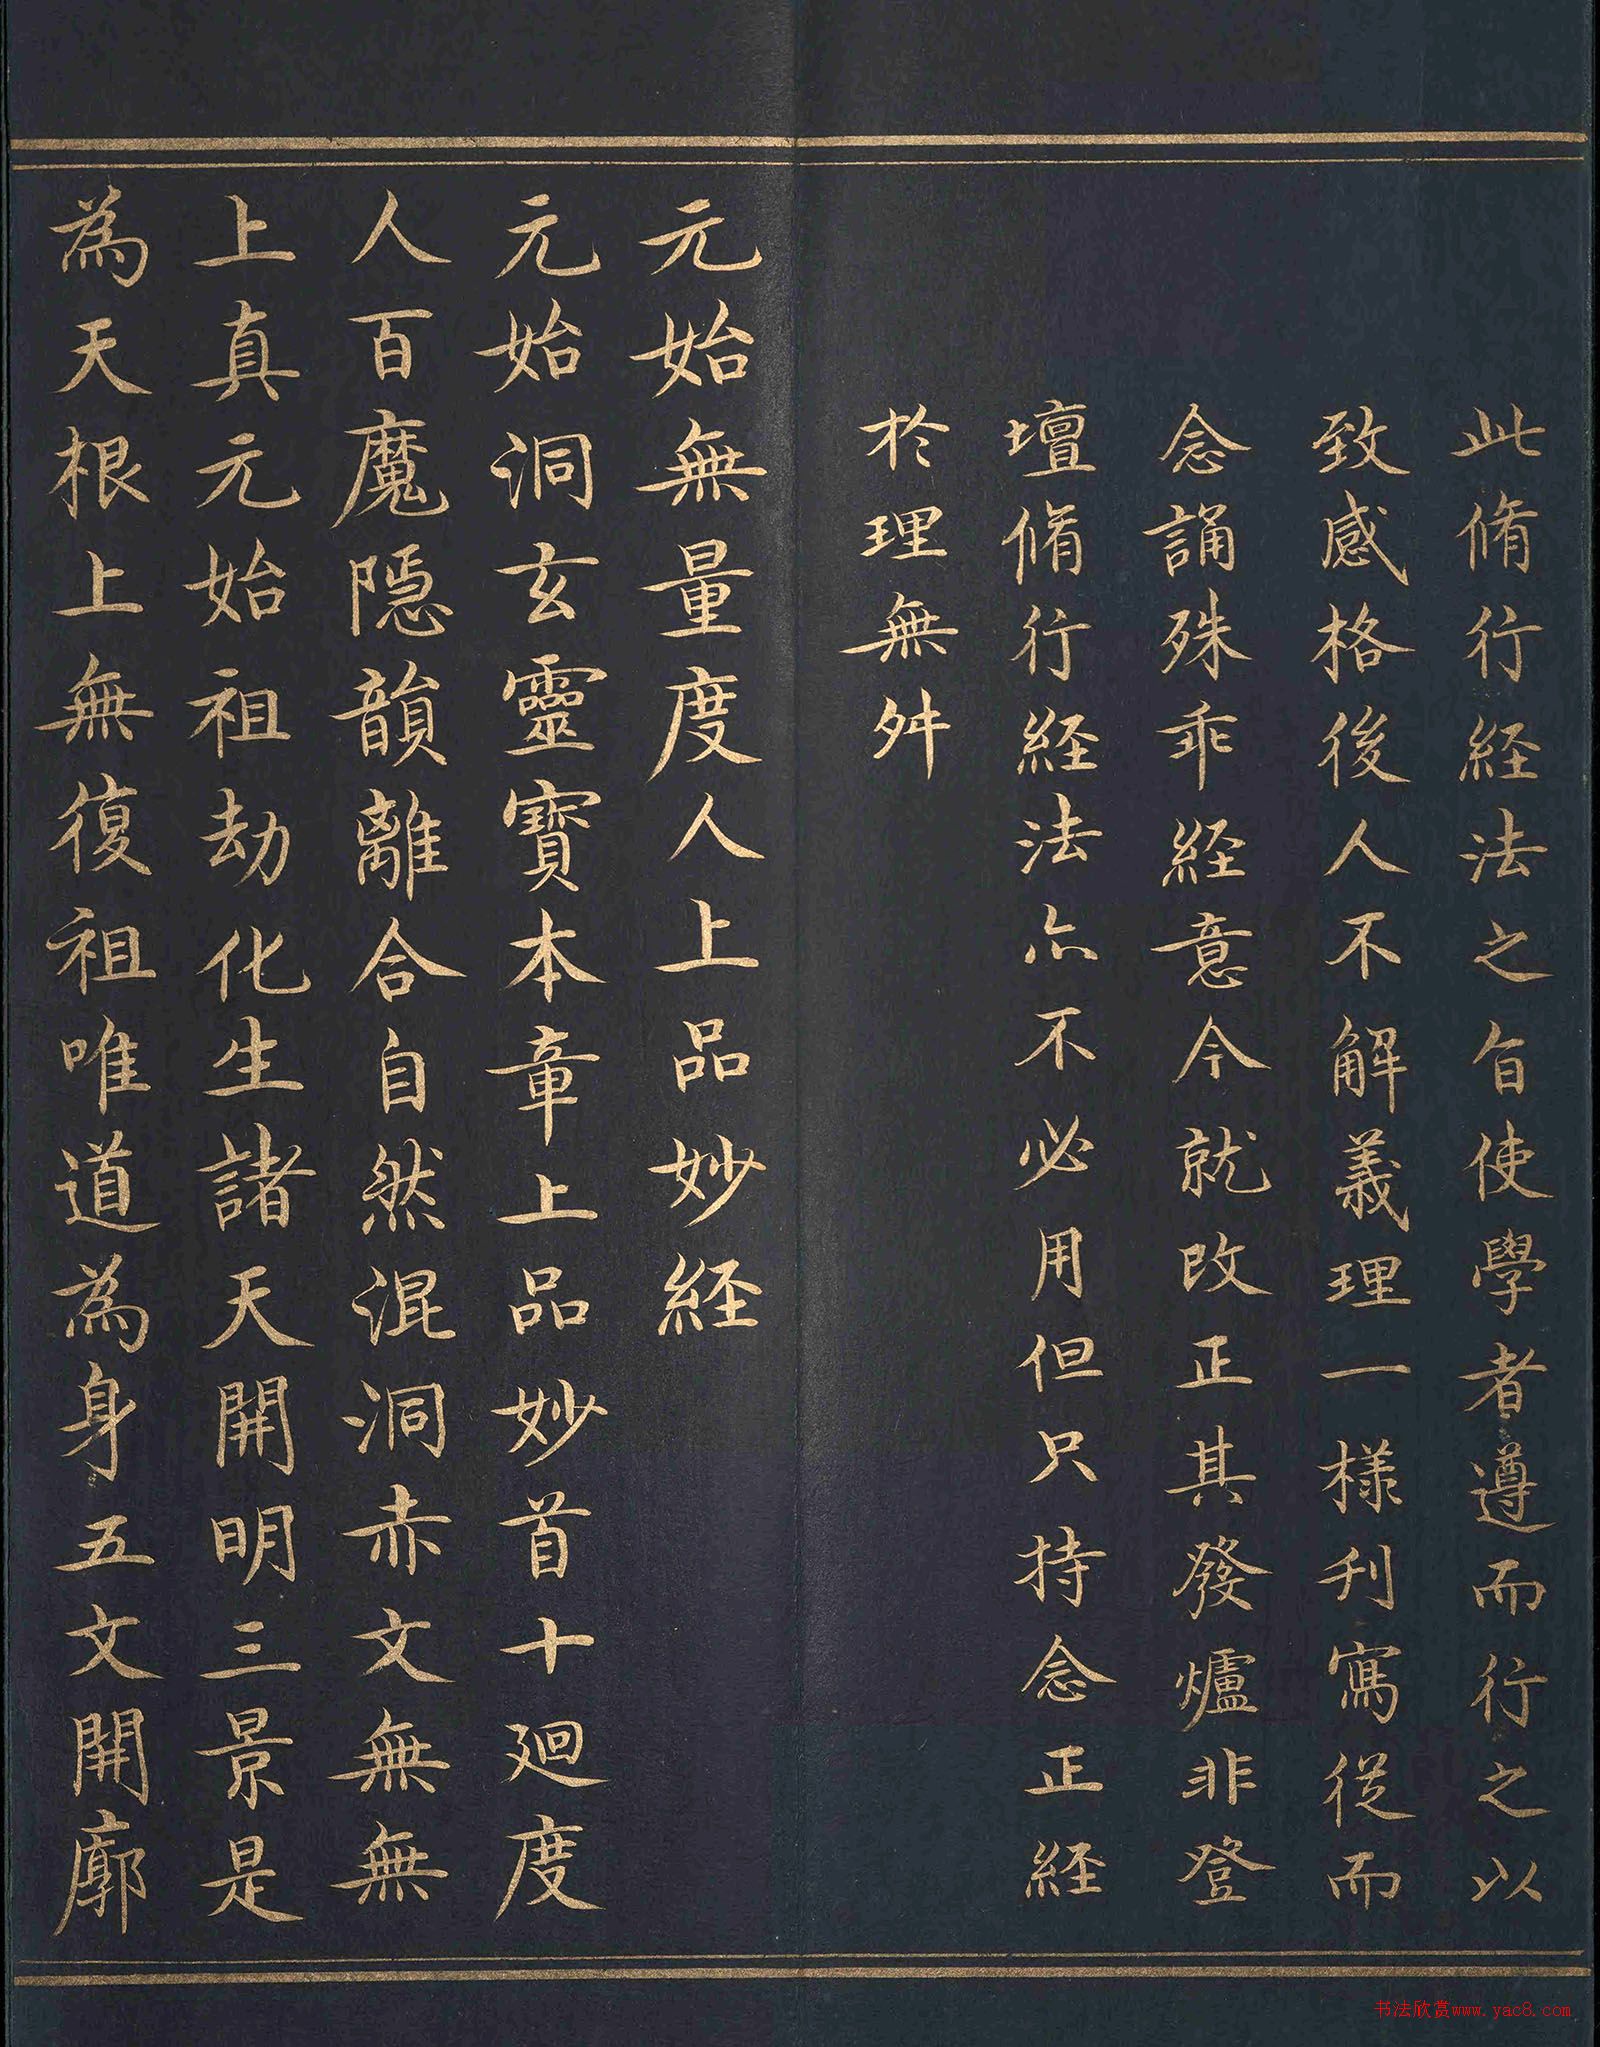 此脩行經法之旨使學者遵而行之以
致感格後人不解義理一樣刋寫從而
念誦殊乖經意今就改正其發爐非登
壇脩行經法亦不必用但只持念正經
於理無舛
元始無量度人上品妙經
元始洞玄靈寶本章上品妙首十廻度
人百魔隱韻離合自然混洞赤文無無
上真元始祖劫化生諸天開明三景是
為天根上無復祖唯道為身五文開廓
书法欣赏www.yac8.com